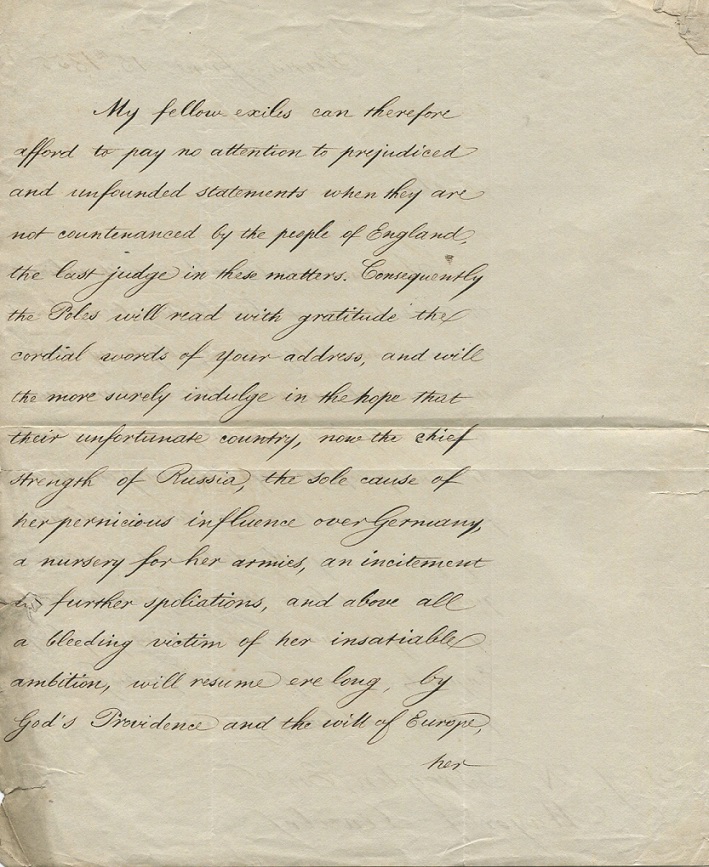 My fellow exiles can therefore
afford to pay no attention to prejudiced
and unfounded statements when they are
not countenanced by the people of England,
the last judge in these matters. Consequently
the Poles will read with gratitude the
cordial words of your address, and will
the more surely indulge in the hope that
their unfortunate country, now the chief
strength of Russia, the sole cause of
her pernicious influence over Germany,
a nursery for her armies, an incitement
to further spoliations, and above all
a bleeding victim of her insatiable
ambition, will resume ere long, by
God's Providence and the will of Europe,
her